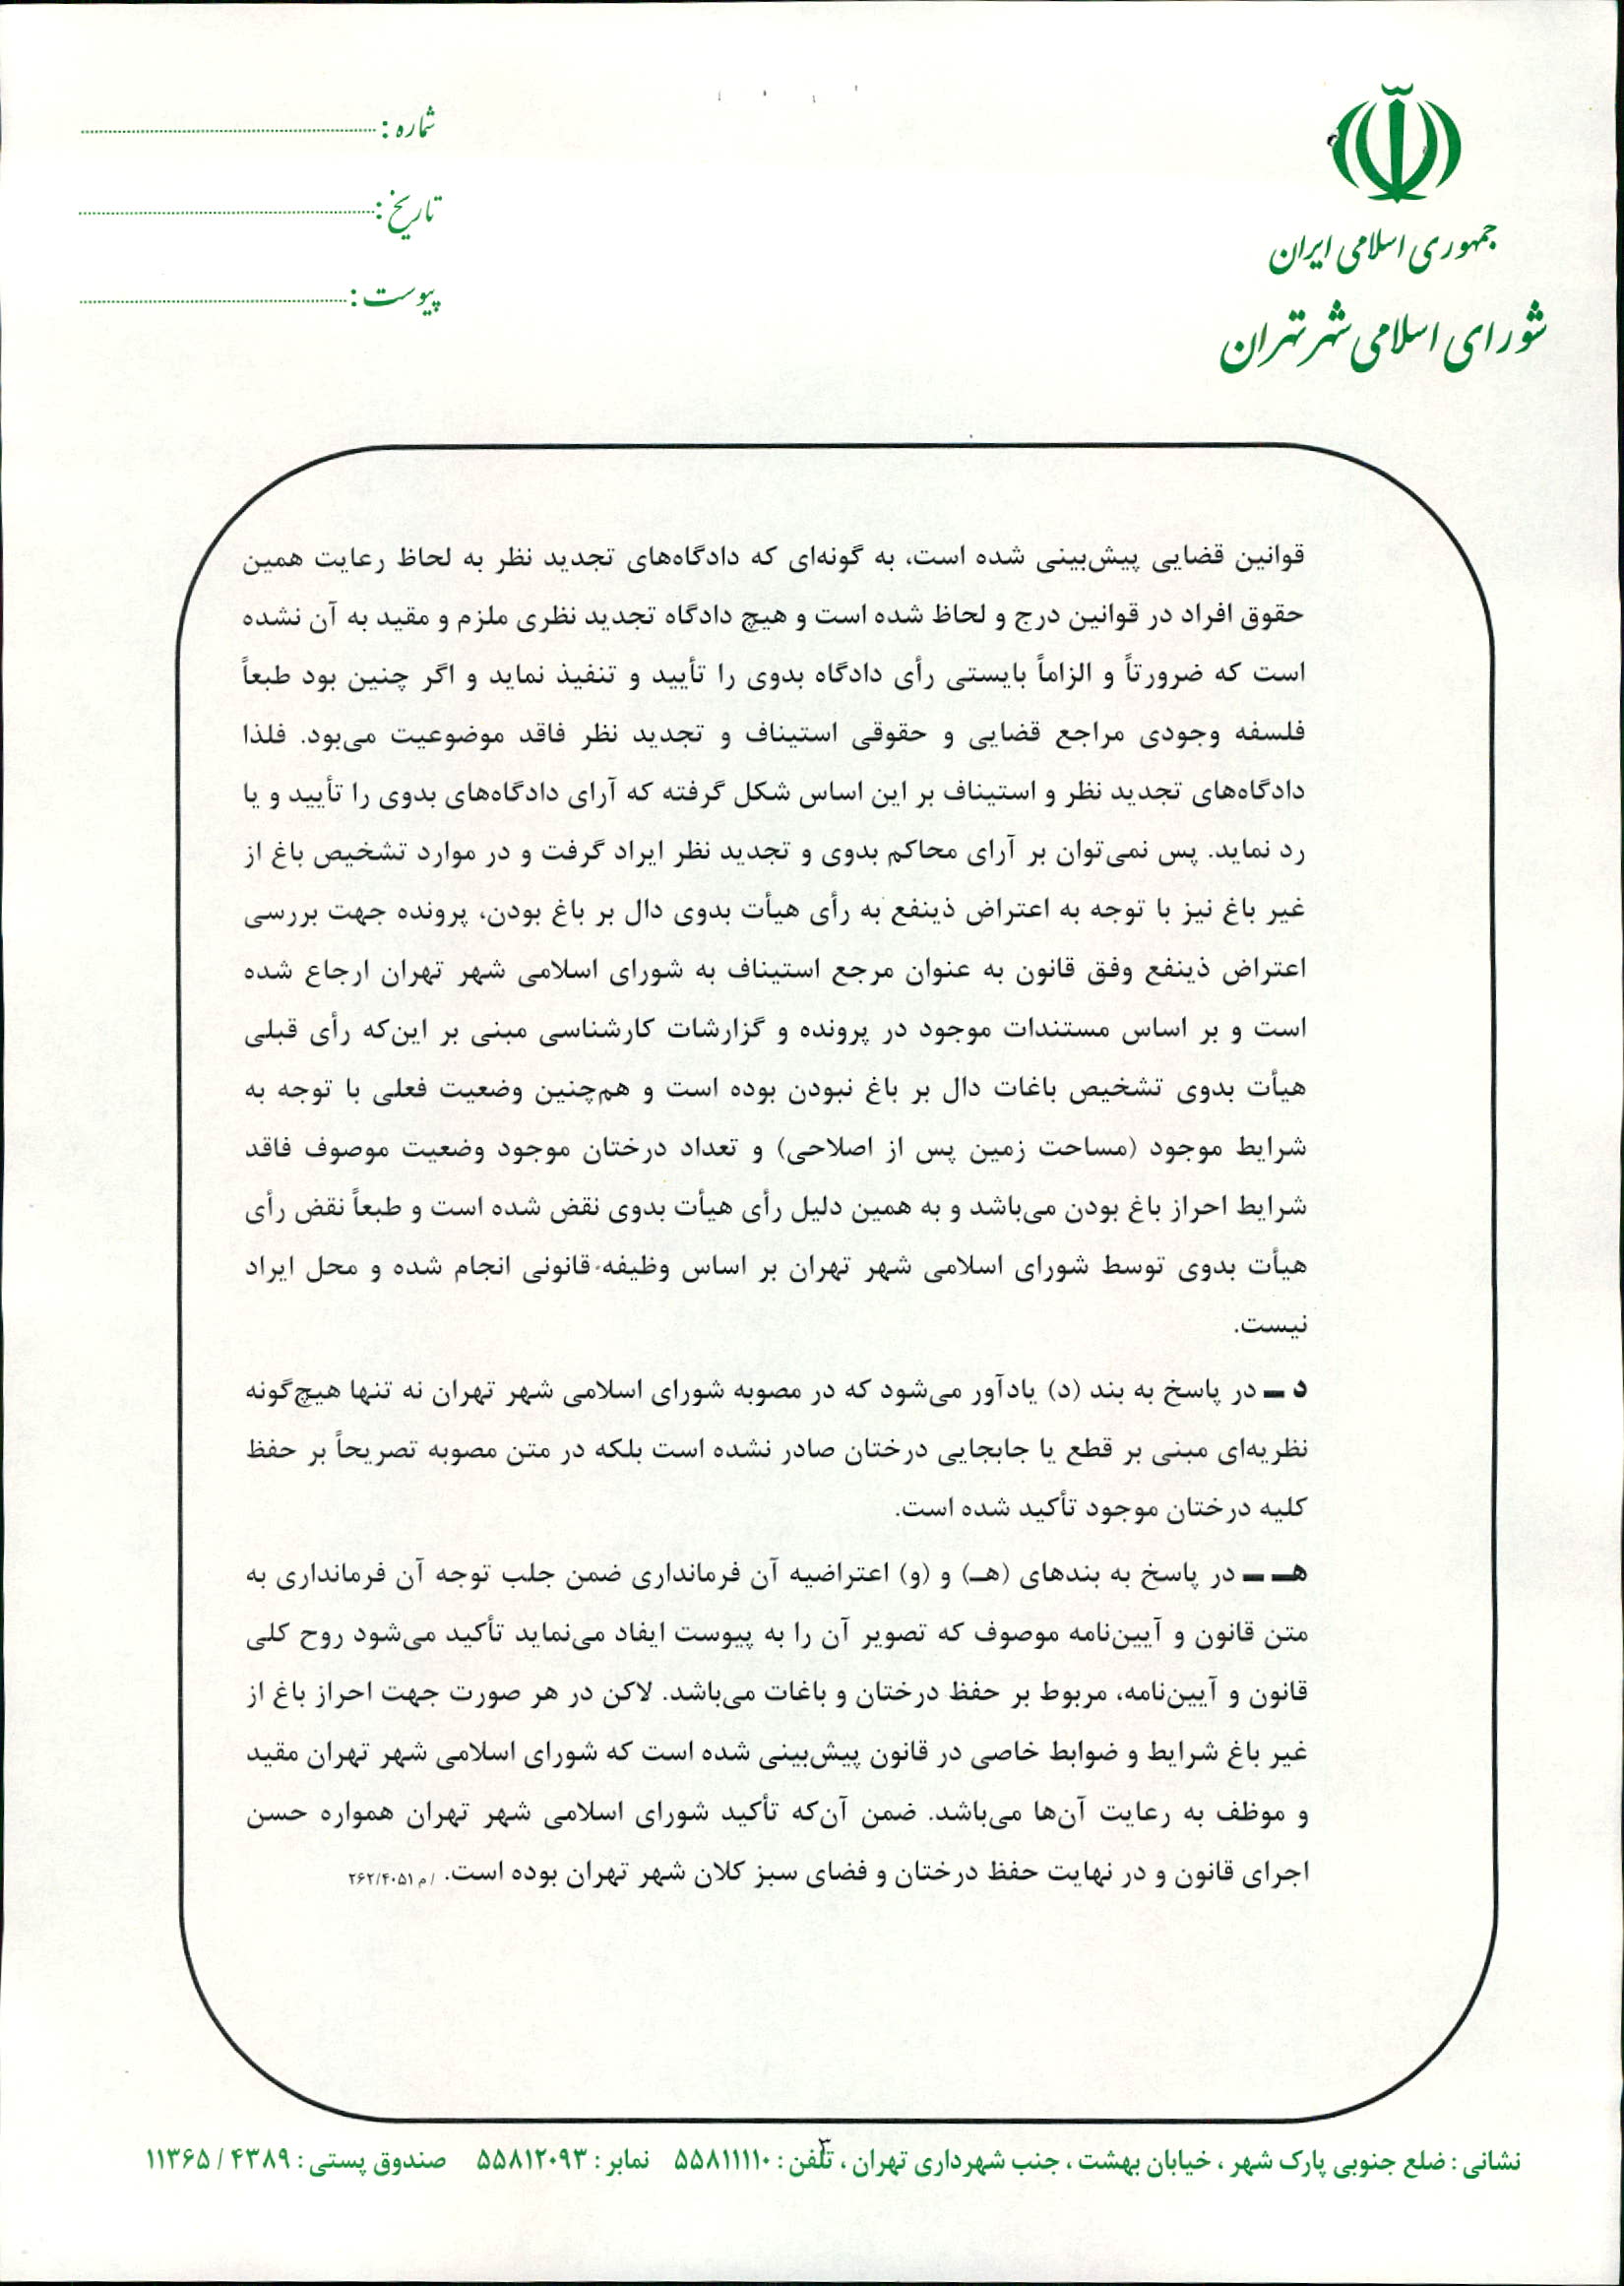 جمهوری اسلامی ایران
شورای اسلامی شهر تهران
شماره :
تاریخ :
پیوست :
قوانین قضایی پیش‌بینی شده است، به گونه‌ای که دادگاه‌های تجدید نظر به لحاظ رعایت همین
حقوق افراد در قوانین درج و لحاظ شده است و هیچ دادگاه تجدید نظری ملزم و مقید به آن نشده
است که ضرورتاً و الزاماً بایستی رأی دادگاه بدوی را تأیید و تنفیذ نماید و اگر چنین بود طبعاً
فلسفه وجودی مراجع قضایی و حقوقی استیناف و تجدید نظر فاقد موضوعیت می‌بود. فلذا
دادگاه‌های تجدید نظر و استیناف بر این اساس شکل گرفته که آرای دادگاه‌های بدوی را تأیید و یا
رد نماید. پس نمی‌توان بر آرای محاکم بدوی و تجدید نظر ایراد گرفت و در موارد تشخیص باغ از
غیر باغ نیز با توجه به اعتراض ذینفع به رأی هیأت بدوی دال بر باغ بودن، پرونده جهت بررسی
اعتراض ذینفع وفق قانون به عنوان مرجع استیناف به شورای اسلامی شهر تهران ارجاع شده
است و بر اساس مستندات موجود در پرونده و گزارشات کارشناسی مبنی بر این‌که رأی قبلی
هیأت بدوی تشخیص باغات دال بر باغ نبودن بوده است و هم‌چنین وضعیت فعلی با توجه به
شرایط موجود (مساحت زمین پس از اصلاحی) و تعداد درختان موجود وضعیت موصوف فاقد
شرایط احراز باغ بودن می‌باشد و به همین دلیل رأی هیأت بدوی نقض شده است و طبعاً نقض رأی
هیأت بدوی توسط شورای اسلامی شهر تهران بر اساس وظیفه قانونی انجام شده و محل ایراد
نیست.
د ـ در پاسخ به بند (د) یادآور می‌شود که در مصوبه شورای اسلامی شهر تهران نه تنها هیچ‌گونه
نظریه‌ای مبنی بر قطع یا جابجایی درختان صادر نشده است بلکه در متن مصوبه تصریحاً بر حفظ
کلیه درختان موجود تأکید شده است.
هـ ـ در پاسخ به بندهای (هـ) و (و) اعتراضیه آن فرمانداری ضمن جلب توجه آن فرمانداری به
متن قانون و آیین‌نامه موصوف که تصویر آن را به پیوست ایفاد می‌نماید تأکید می‌شود روح کلی
قانون و آیین‌نامه، مربوط بر حفظ درختان و باغات می‌باشد. لاکن در هر صورت جهت احراز باغ از
غیر باغ شرایط و ضوابط خاصی در قانون پیش‌بینی شده است که شورای اسلامی شهر تهران مقید
و موظف به رعایت آن‌ها می‌باشد. ضمن آن‌که تأکید شورای اسلامی شهر تهران همواره حسن
اجرای قانون و در نهایت حفظ درختان و فضای سبز کلان شهر تهران بوده است. / م ۲۶۲/۴۰۵۱
۳
نشانی : ضلع جنوبی پارک شهر ، خیابان بهشت ، جنب شهرداری تهران ، تلفن : ۵۵۸۱۱۱۱۰ نمابر : ۵۵۸۱۲۰۹۳ صندوق پستی : ۴۳۸۹ / ۱۱۳۶۵